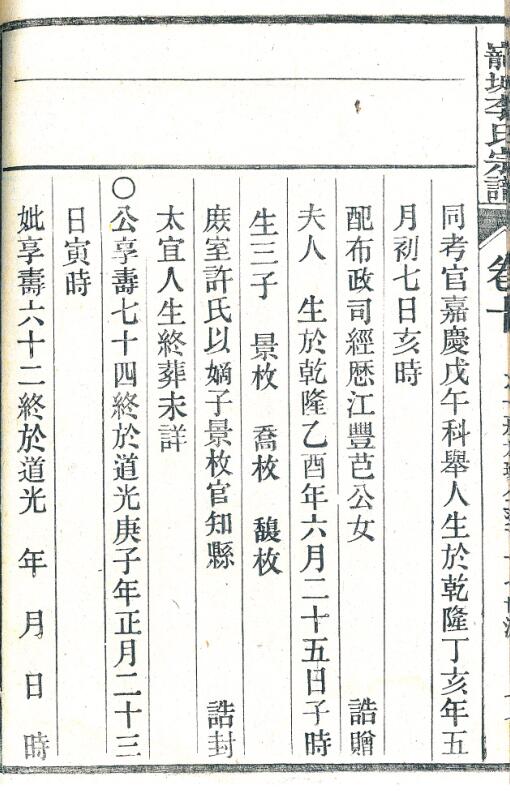 李氏宗譜
卷十
同考官嘉慶戊午科舉人生於乾隆丁亥年五
月初七日亥時
配布政司經歷江豐芑公女　誥贈
夫人　生於乾隆乙酉年六月二十五日子時
生三子　景枚　喬枚　馥枚
庶室許氏以嫡子景枚官知縣　誥封
太宜人生終葬未詳
○公享壽七十四終於道光庚子年正月二十三
日寅時
妣享壽六十二終於道光　年　月　日　時